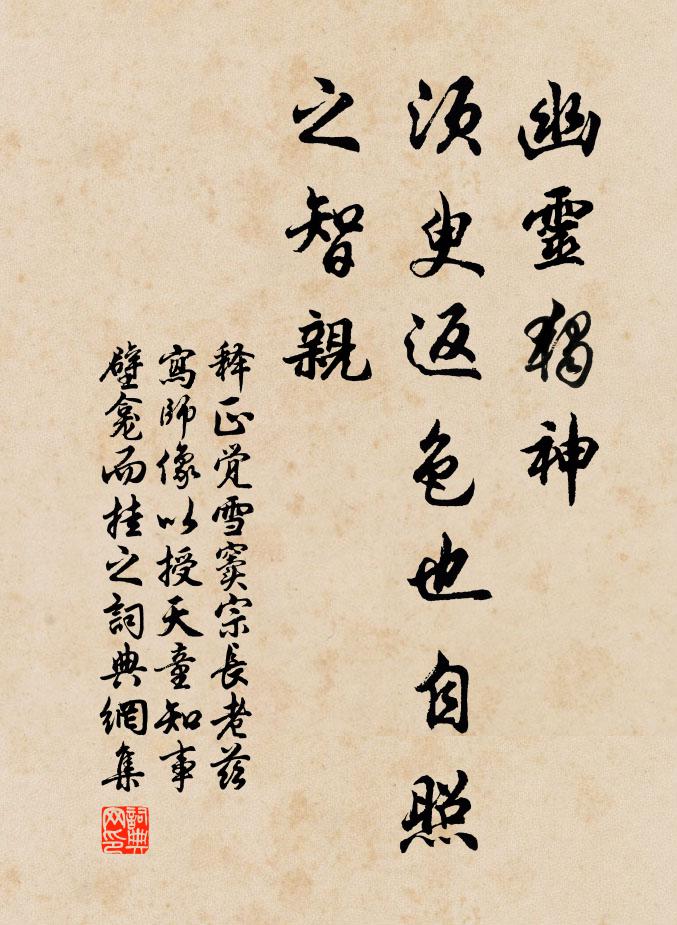 幽靈獨神
須臾返色也自照
之智親
釋正覺雪竇宗長老茲
寫師像以授天童知事
壁龕而挂之詞典網集
詞典网印